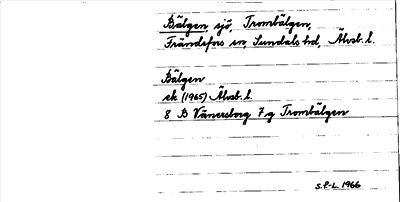 Bälgen, sjö, Trombälgen,
Frändefors sn, Sundals hd, Älvsb. l.
Bälgen
ek (1965) Älvsb. l.
8 B Vänersborg 7 g Trombälgen
S.F-L. 1966